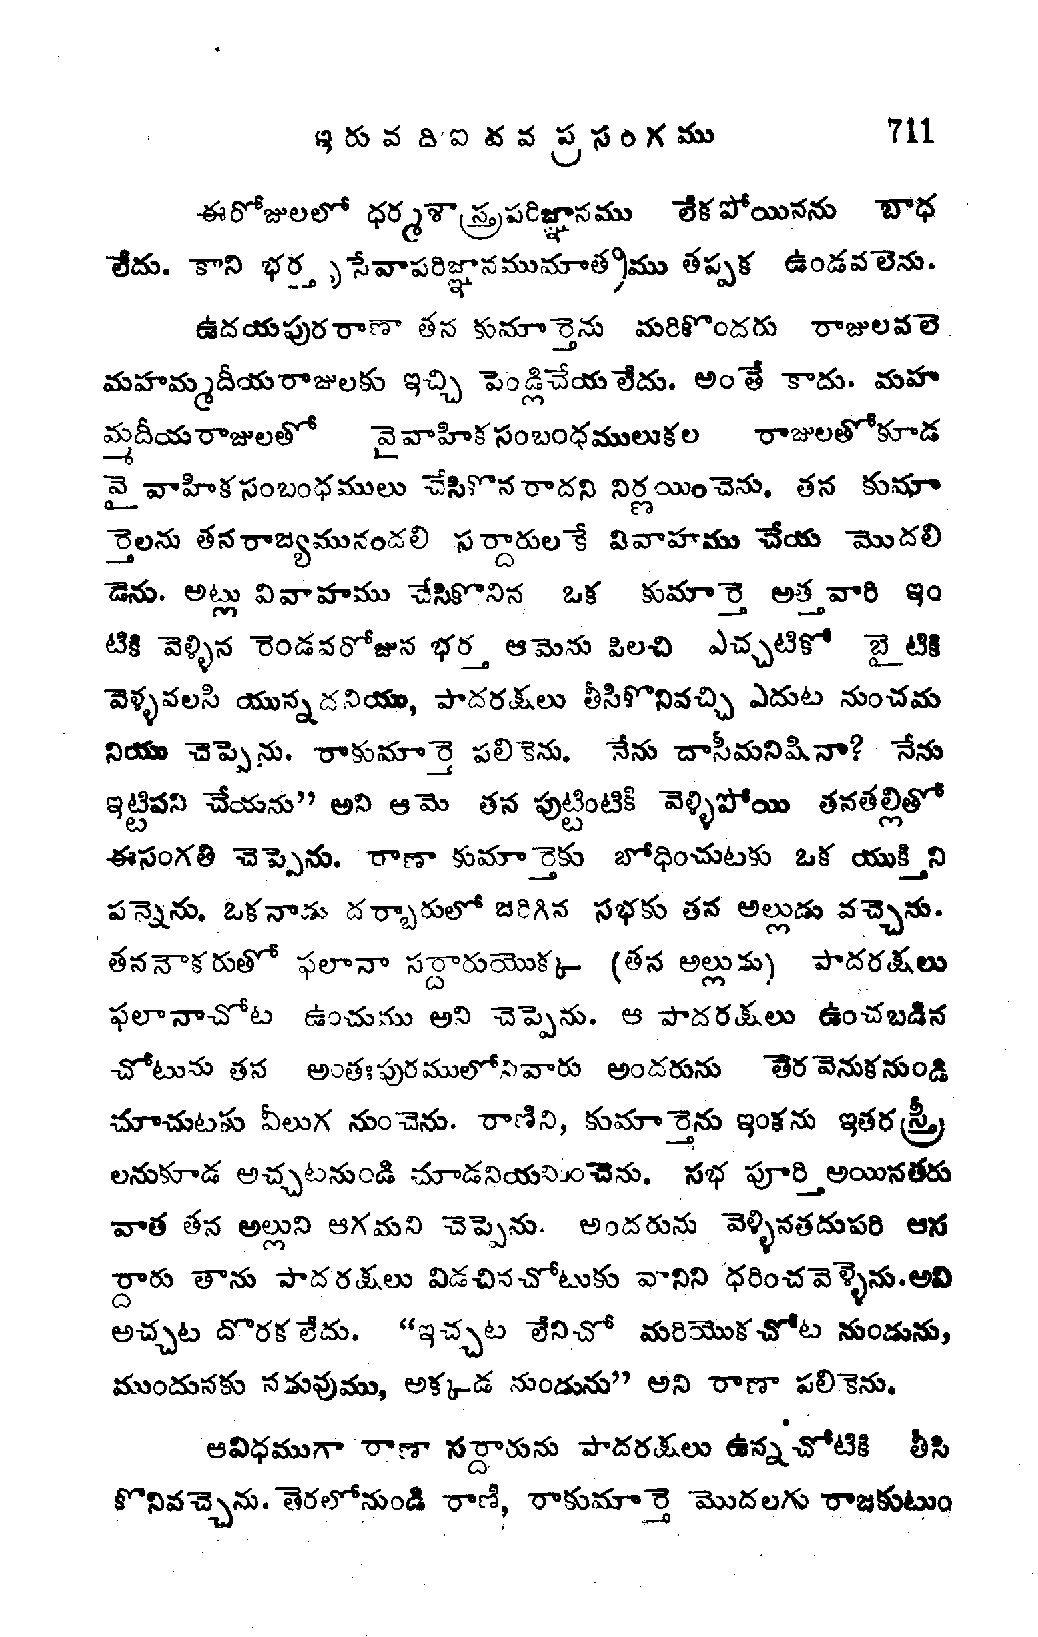 ఇరువదిఐదవ ప్రసంగము 711
ఈరోజులలో ధర్మశాస్త్రపరిజ్ఞానము లేకపోయినను బాధ
లేదు. కాని భర్తృసేవాపరిజ్ఞానముమాత్రము తప్పక ఉండవలెను.
ఉదయపురరాణా తన కుమార్తెను మరికొందరు రాజులవలె
మహమ్మదీయరాజులకు ఇచ్చి పెండ్లిచేయలేదు. అంతే కాదు. మహ
మ్మదీయరాజులతో వైవాహికసంబంధములుకల రాజులతోకూడ
వైవాహికసంబంధములు చేసికొనరాదని నిర్ణయించెను. తన కుమా
ర్తెలను తనరాజ్యమునందలి సర్దారులకే వివాహము చేయ మొదలి
డెను. అట్లు వివాహము చేసికొనిన ఒక కుమార్తె అత్తవారి ఇం
టికి వెళ్ళిన రెండవరోజున భర్త ఆమెను పిలచి ఎచ్చటికో బైటికి
వెళ్ళవలసి యున్నదనియు, పాదరక్షలు తీసికొనివచ్చి ఎదుట నుంచమ
నియు చెప్పెను. రాకుమార్తె పలికెను. నేను దాసీమనిషినా? నేను
ఇట్టిపని చేయను" అని ఆమె తన పుట్టింటికి వెళ్ళిపోయి తనతల్లితో
ఈసంగతి చెప్పెను. రాణా కుమార్తెకు బోధించుటకు ఒక యుక్తిని
పన్నెను. ఒకనాడు దర్బారులో జరిగిన సభకు తన అల్లుడు వచ్చెను.
తననౌకరుతో ఫలానా సర్దారుయొక్క (తన అల్లుడు) పాదరక్షలు
ఫలానాచోట ఉంచుము అని చెప్పెను. ఆ పాదరక్షలు ఉంచబడిన
చోటును తన అంతఃపురములోనివారు అందరును తెరవెనుకనుండి
చూచుటకు వీలుగ నుంచెను. రాణిని, కుమార్తెను ఇంకను ఇతరస్త్రీ
లనుకూడ అచ్చటనుండి చూడనియమించెను. సభ పూర్తిఅయినతరు
వాత తన అల్లుని ఆగమని చెప్పెను. అందరును వెళ్ళినతరుపరి ఆస
ర్దారు తాను పాదరక్షలు విడచినచోటుకు వానిని ధరించవెళ్ళెను.అవి
అచ్చట దొరకలేదు. "ఇచ్చట లేనిచో మరియొకచోట నుండును,
ముందునకు నడువుము, అక్కడ నుండును" అని రాణా పలికెను.
ఆవిధముగా రాణా సర్దారును పాదరక్షలు ఉన్నచోటికి తీసి
కొనివచ్చెను. తెరలోనుండి రాణి, రాకుమార్తె మొదలగు రాజకుటుం